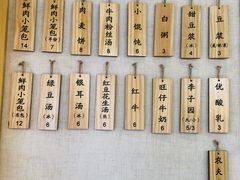 鲜肉小笼包
14
鲜肉小笼包
7
肉麦饼
8
牛肉粉丝汤
8
小馄饨
6
白粥
3
甜豆浆
(冰)
4
豆浆
3
鲜肉小笼包
12
绿豆汤
(冰)
6
银耳汤
(冰)
6
红豆花生汤
(热)
6
红牛
6
旺仔牛奶
6
李子园
(大/小)
5/3
优酸乳
3
农夫